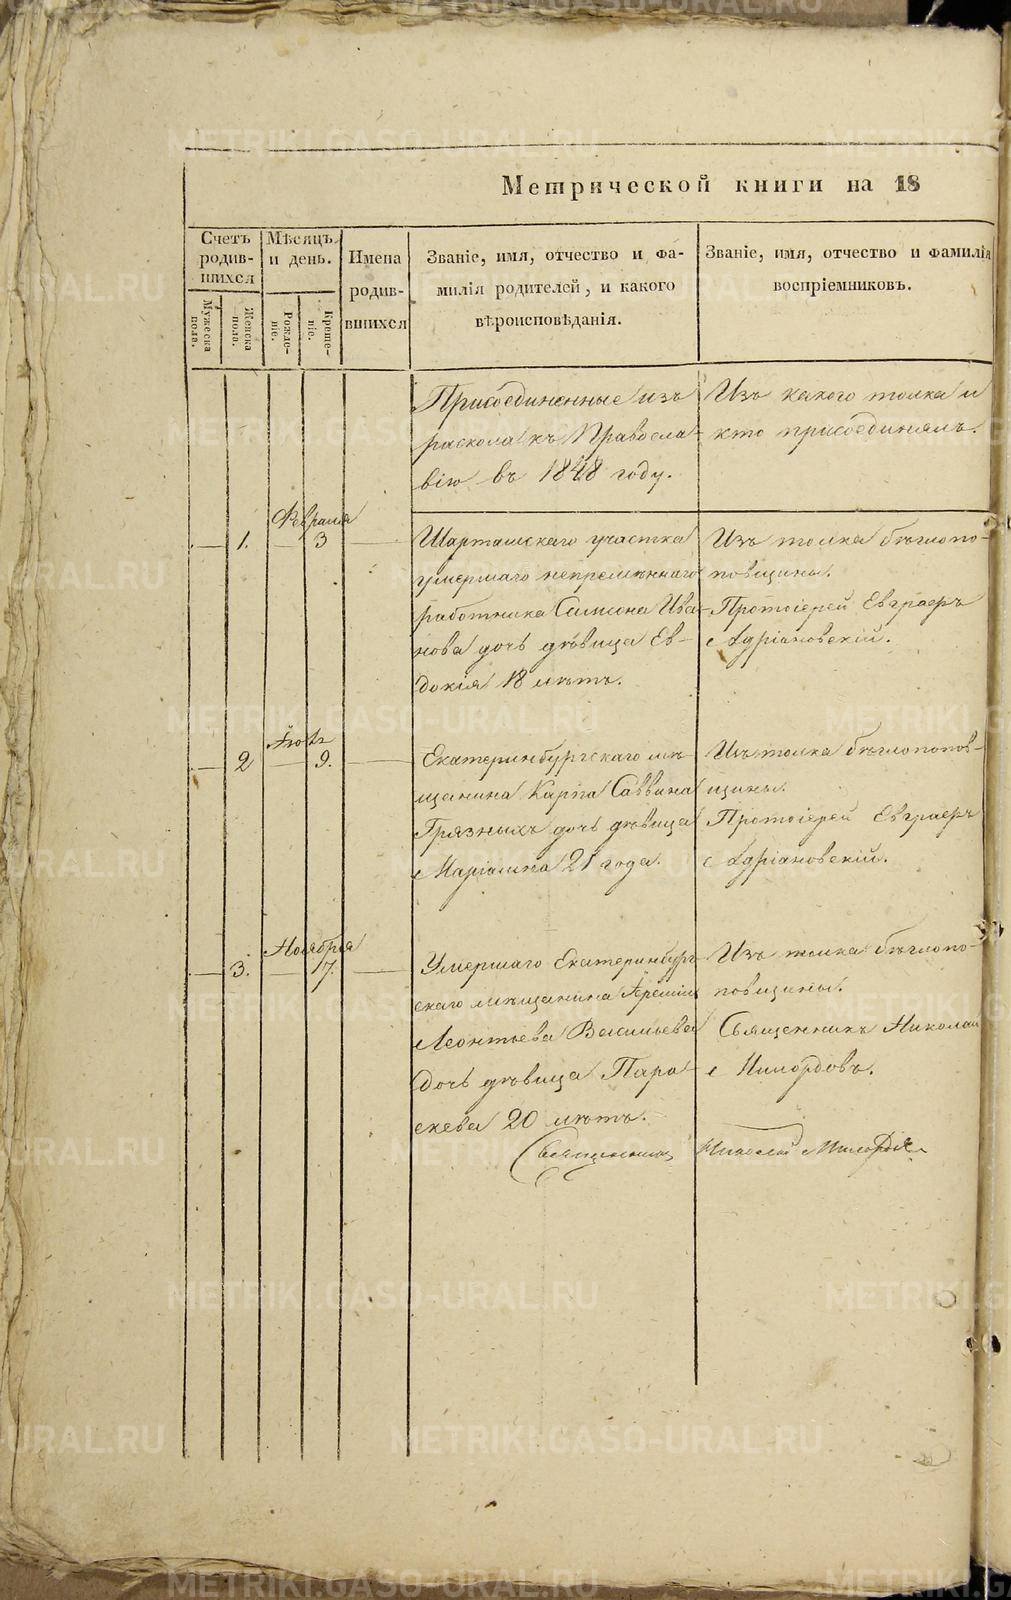 Метрической книги на 18
Счетъ родив-шихся
Мѣсяцъ и день.
Имена родив-вшихся
Званіе, имя, отчество и фа-
милія родителей, и какого
вѣроисповѣданія.
Званіе, имя, отчество и фамилія
воспріемниковъ.
Мужеска пола.
Женска пола.
Рожде-ніе.
Креще-ніе.
Присоединенные изъ
раскола къ Правосла-
вію въ 1848 году.
Изъ какого толка и
кто присоединялъ.
Февраля
1. 3
Шарташскаго участка
умершаго непремѣннаго
работника Симона Ива-
нова дочь дѣвица Ев-
докія 18 лѣтъ.
Изъ толка бѣглопо-
повщины.
Протоіерей Евграфъ
Адріановскій.
2 9.
Екатеринбургскаго мѣ-
щанина Карпа Саввина
Грязныхъ дочь дѣвица
Маріамна 21 года.
Изъ толка бѣглопопов-
щины.
Протоіерей Евграфъ
Адріановскій.
Ноября
3. 17.
Умершаго Екатеринбург-
скаго мѣщанина
Леонтьева Васильева
дочь дѣвица Пара-
скева 20 лѣтъ.
Изъ толка бѣглопо-
повщины.
Священникъ Николай
Милордовъ.
Священникъ Николай Милордовъ
METRIKI.GASO-URAL.RU